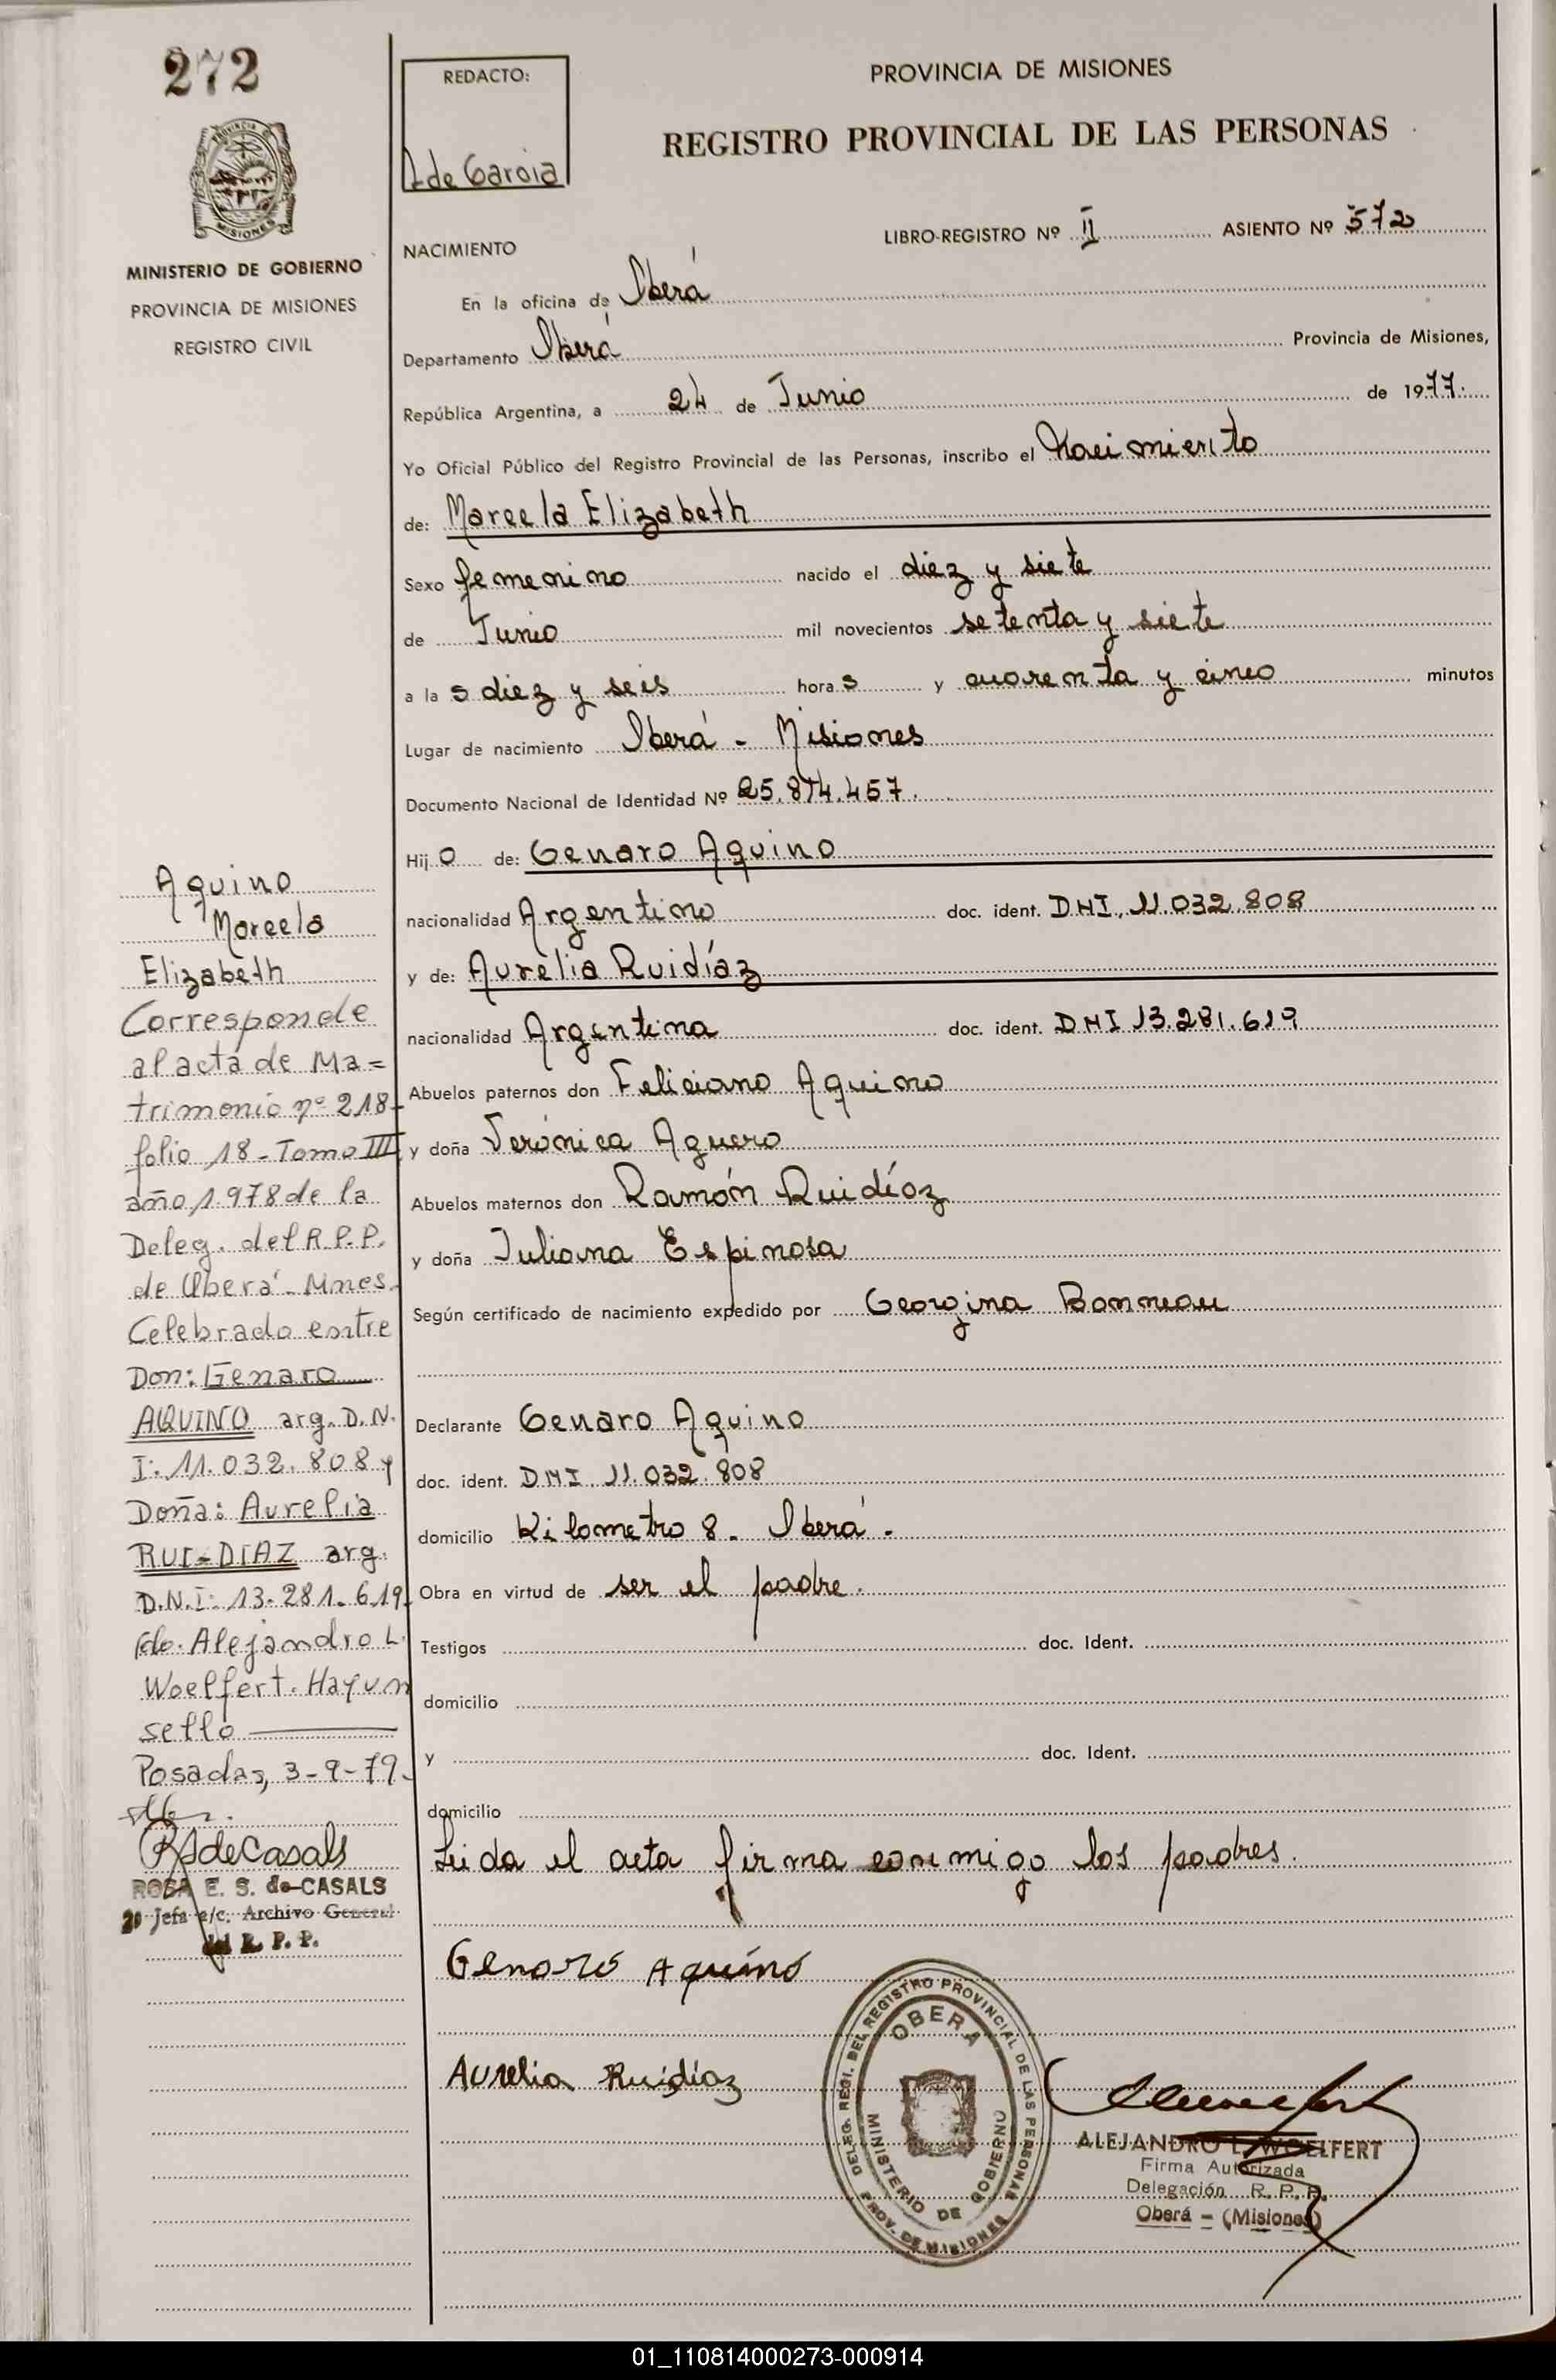 272
PROVINCIA DE
MISIONES
MINISTERIO DE GOBIERNO
PROVINCIA DE MISIONES
REGISTRO CIVIL
REDACTO:
de Garcia
PROVINCIA DE MISIONES
REGISTRO PROVINCIAL DE LAS PERSONAS
LIBRO-REGISTRO Nº II ASIENTO Nº 572
NACIMIENTO
En la oficina de Oberá
Departamento Oberá Provincia de Misiones,
República Argentina, a 24 de Junio de 1977.
Yo Oficial Público del Registro Provincial de las Personas, inscribo el Nacimiento
de: Marcela Elizabeth
Sexo femenino nacido el diez y siete
de Junio mil novecientos setenta y siete
a la s diez y seis hora s y cuarenta y cinco minutos
Lugar de nacimiento Oberá - Misiones
Documento Nacional de Identidad Nº 25.874.457.
Hij o de: Genaro Aquino
nacionalidad Argentino doc. ident. DNI. 11.032.808
y de: Aurelia Ruidíaz
nacionalidad Argentina doc. ident. DNI 13.281.619
Abuelos paternos don Feliciano Aquino
y doña Verónica Aguero
Abuelos maternos don Ramón Ruidíaz
y doña Juliana Espinosa
Según certificado de nacimiento expedido por Georgina Bonneau
Declarante Genaro Aquino
doc. ident. DNI 11.032.808
domicilio Kilometro 8 - Oberá -
Obra en virtud de ser el padre.
Testigos doc. Ident.
domicilio
y doc. Ident.
domicilio
Leida el acta firma conmigo los padres.
Genaro Aquino
Aurelia Ruidíaz
DELEG. REGI. DEL REGISTRO PROVINCIAL DE LAS PERSONAS
OBERA
MINISTERIO DE GOBIERNO
PROV. DE MISIONES
ALEJANDRO L. WOELFERT
Firma Autorizada
Delegación R. P. P.
Oberá - (Misiones)
Aquino
Marcela
Elizabeth
Corresponde
al acta de Ma=
trimonio nº 218-
folio 18 - Tomo III,
año 1.978 de la
Deleg. del R.P.P.
de Oberá - Mnes.
Celebrado entre
Don: Genaro
AQUINO arg. D.N.
I: 11.032.808 y
Doña: Aurelia
RUI-DIAZ arg.
D.N.I: 13.281.619.
fdo. Alejandro L.
Woelfert. Hay un
sello
Posadas, 3-9-79.
RSdeCasals
ROSA E. S. de CASALS
2º Jefa a/c. Archivo General
del R. P. P.
01_110814000273-000914